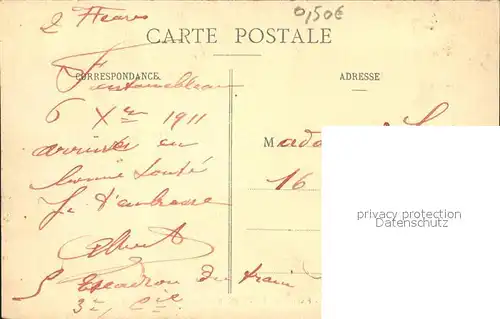 2 Heures
0,50€
CARTE POSTALE
CORRESPONDANCE
ADRESSE
Fontainebleau
6 Xbre 1911
arrivés en
bonne santé
Je t'embrasse
Albert
5 Escadron du train
3e Cie
Mada
16
privacy protection
Datenschutz